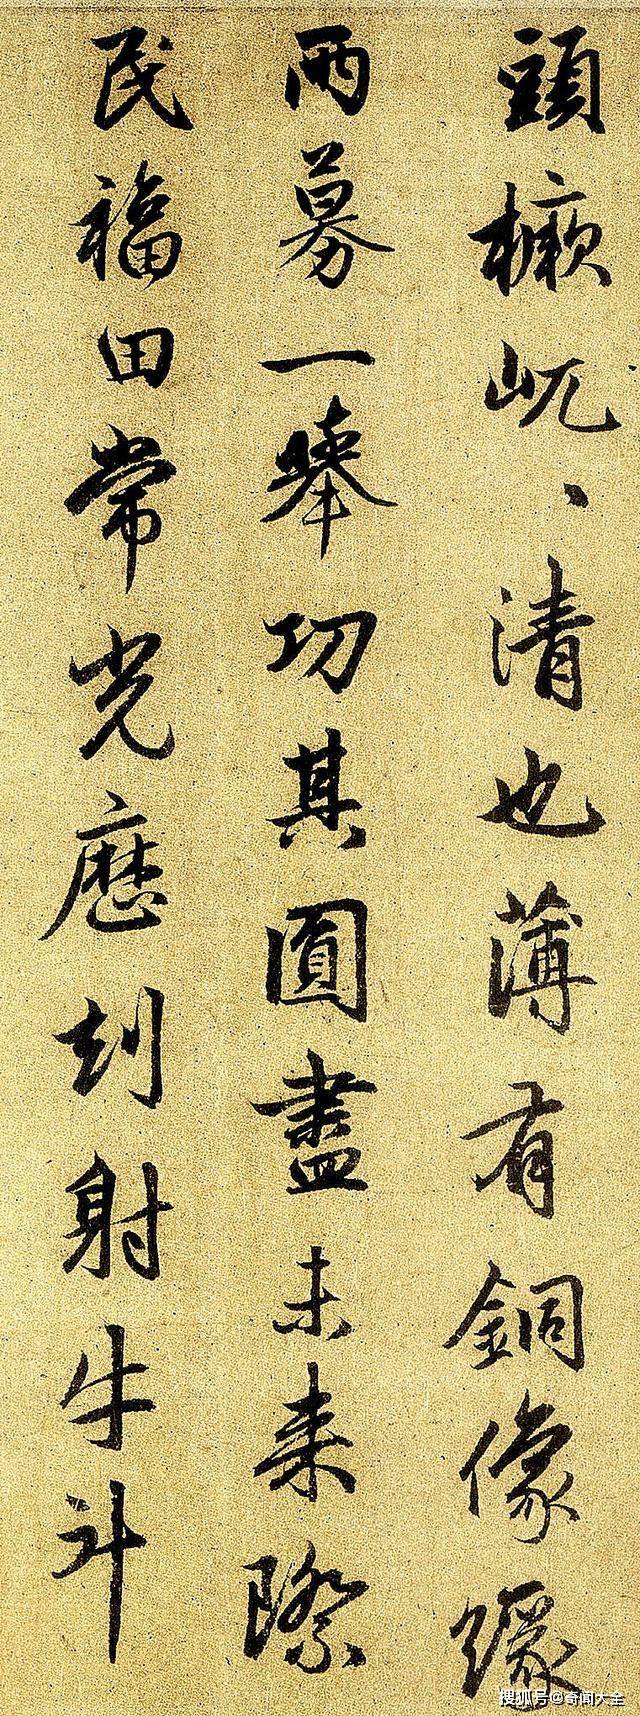 頭橛屼、清也薄有銅像緣
兩募一舉功其圓盡未来際
民福田常光歷刻射牛斗
搜狐号@奇闻大全